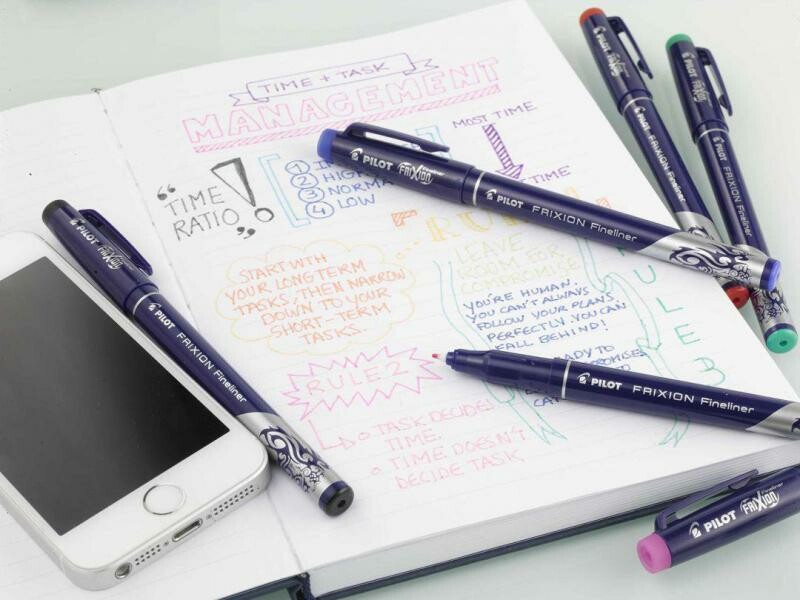 TIME + TASK
MANAGEMENT
MOST TIME
TIME
"TIME
RATIO"
!
1
2 HIGH
3 NORMA
4 LOW
START WITH
YOUR LONG TERM
TASKS, THEN NARROW
DOWN TO YOUR
SHORT-TERM
TASKS.
LEAVE
ROOM FOR
COMPROMISE
YOU'RE HUMAN,
YOU CAN'T ALWAYS
FOLLOW YOUR PLANS
PERFECTLY. YOU CAN
FALL BEHIND!
READY TO
RULE 3
RULE 2
TASK DECIDES
TIME.
TIME DOESN'T
DECIDE TASK
PILOT FRIXION Fineliner
PILOT FRIXION Fineliner
PILOT FRIXION Fineliner
PILOT FRIXION Fineliner
PILOT FRIXION Fineliner
PILOT FRIXION Fineliner
PILOT FRIXION Fineliner